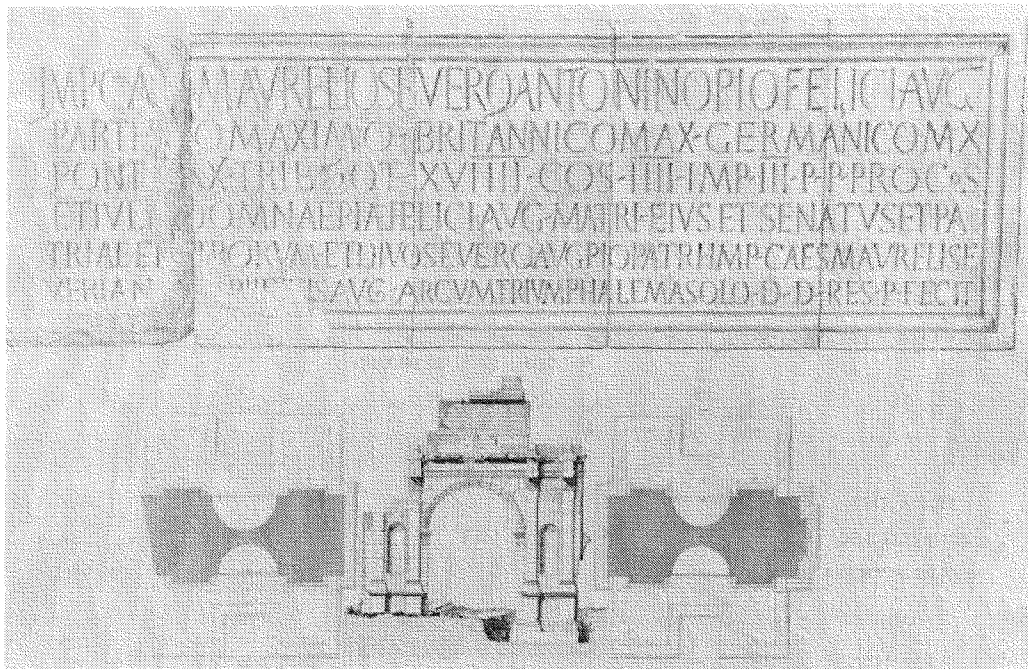 IMP CA M AVRELIO SEVERO ANTONINO PIO FELICI AVG
MAXIMO · BRITANNICO MAX · GERMANICO MX
PONT AX TRIB POT · XVIIII · COS · IIII · IMP · III · P · P · PROCOS
ET IVL DOMNAE PIAE FELICI AVG · MATRI · EIVS ET SENATVS ET PA
TRIAE ET ET DIVO SEVERO AVG PIO PATRI IMP CAES M AVRELI SE
VERI AN AVG ARCVM TRIVMPHALEM A SOLO · D · D · RES · P · FECIT